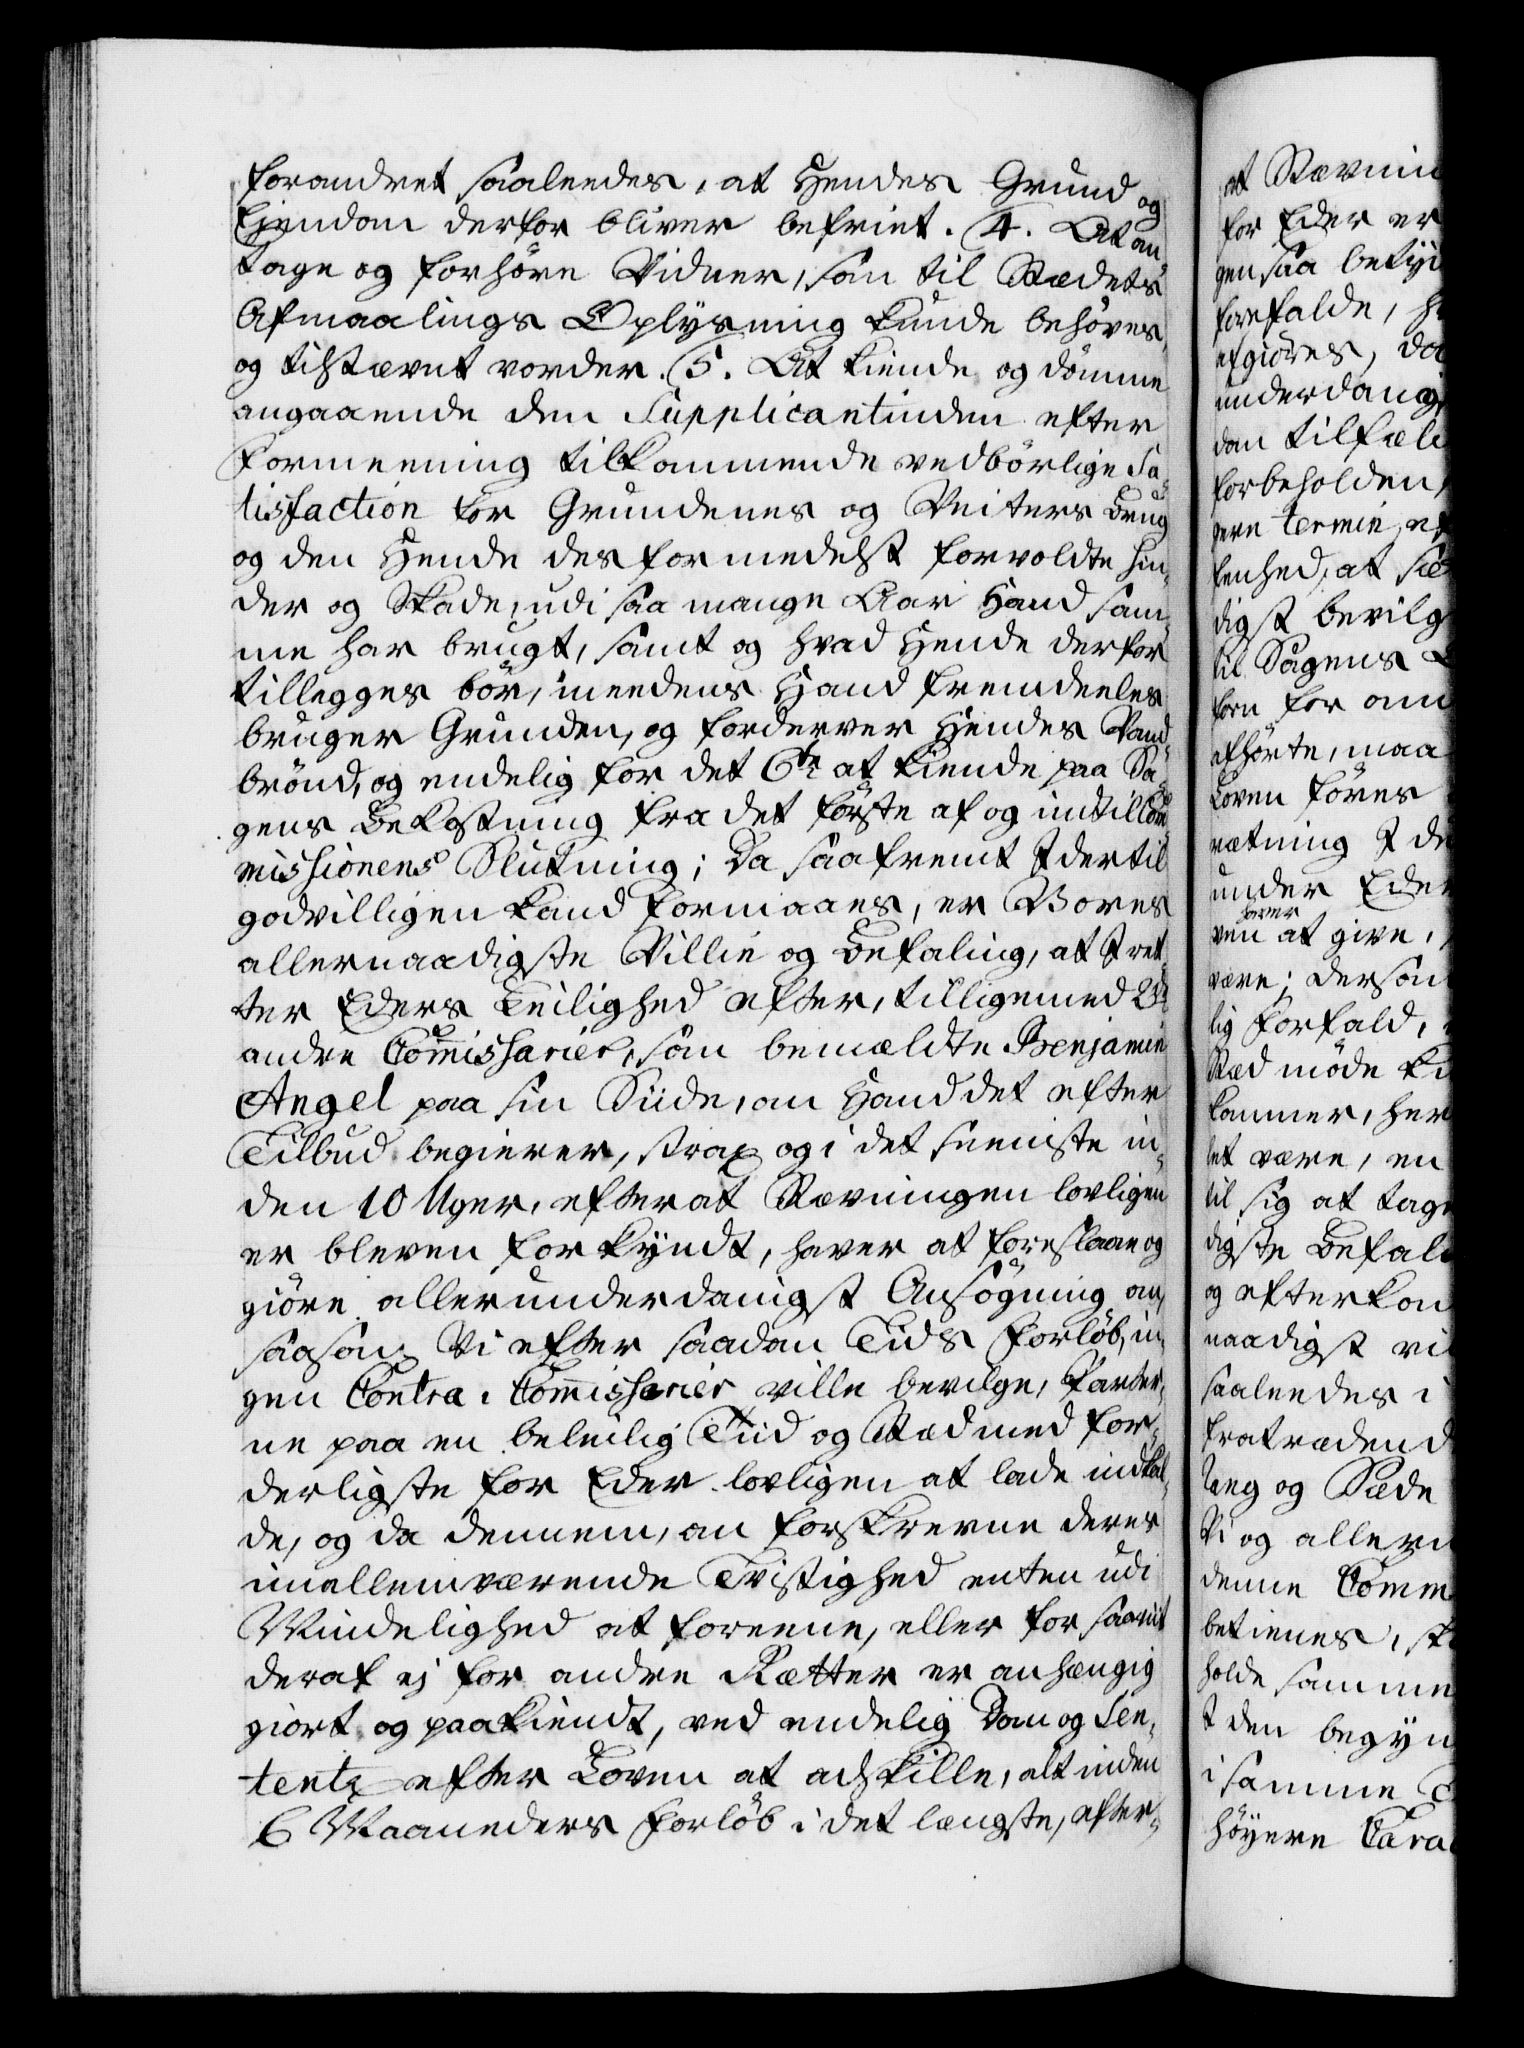 forandret saaleedes, at Hendes Grund og
Ejendom derfor bliver befriet. 4. At an-
tage og forhöre Vidner, som til Stædets
Afmaalings Oplysning kunde behöves,
og tilstævnt vorder. 5. At kiende og dömme
angaaende den Supplicantinden efter
Formeening tilkommende vedbörlige Sa-
tisfaction for Grundenes og Veiters Brug
og den Hende desformedelst forvoldte Hin-
der og Skade, udi saa mange Aar Hand sam-
me har brugt, samt og hvad Hende derfor
tillegges bör, imeedens Hand fremdeeles
bruger Grunden, og forderver Hendes Vand-
brönd, og endelig for det 6te at kiende paa Sa-
gens Bekostning fra det förste af og indtil Com-
missionens Slutning; Da saafremt I dertil
godvilligen kand formaaes, er Vores
allernaadigste Villie og Befaling, at I ret-
ter Eders Leilighed efter, tilligemed 2de
andre Commissarier, som bemældte Benjamin
Angel paa sin Siide, om Hand det efter
Tilbud begierer, strax og i det seeniste in-
den 10 Uger, efter at Stævningen lovligen
er bleven forkyndt, haver at foreslaae og
giöre allerunderdanigst Ansögning om,
saasom Vi efter saadan Tids Forlöb, in-
gen Contra-Commissarier ville bevilge, Parter-
ne paa en beleilig Tiid og Stæd med for-
derligste for Eder lovligen at lade indkal-
de, og da dennem, om forskrevne deres
imellemværende Tvistighed enten udi
Mindelighed at foreene, eller for saavit
deraf ej for andre Rætter er anhængig
giort og paakiendt, ved endelig Dom og Sen-
tentz efter Loven at adskille, alt inden
6 Maaneders Forlöb i det længste, efter-
at Stævnin
for Eder er
gen saa betyd
forefalde, h
afgiöres, da
underdanig
dan tilfæl
forbeholden,
gere termin, ef
lenhed, at
digst bevilg
til Sagens
forn for om
afhörte, maa
Loven föres
rætning I de
under Eder
haver
ven at give,
være; dersom
lig Forfald,
Stæd möde
kommer, her
let være, en
til sig at tage
digste Befal
og efterkom
naadigst vil
saaleedes i
fratrædend
Ting og Sæde
Vi og allern
denne Comm
betienes, sk
holde samme
I den begyn
i samme
höyere Cara